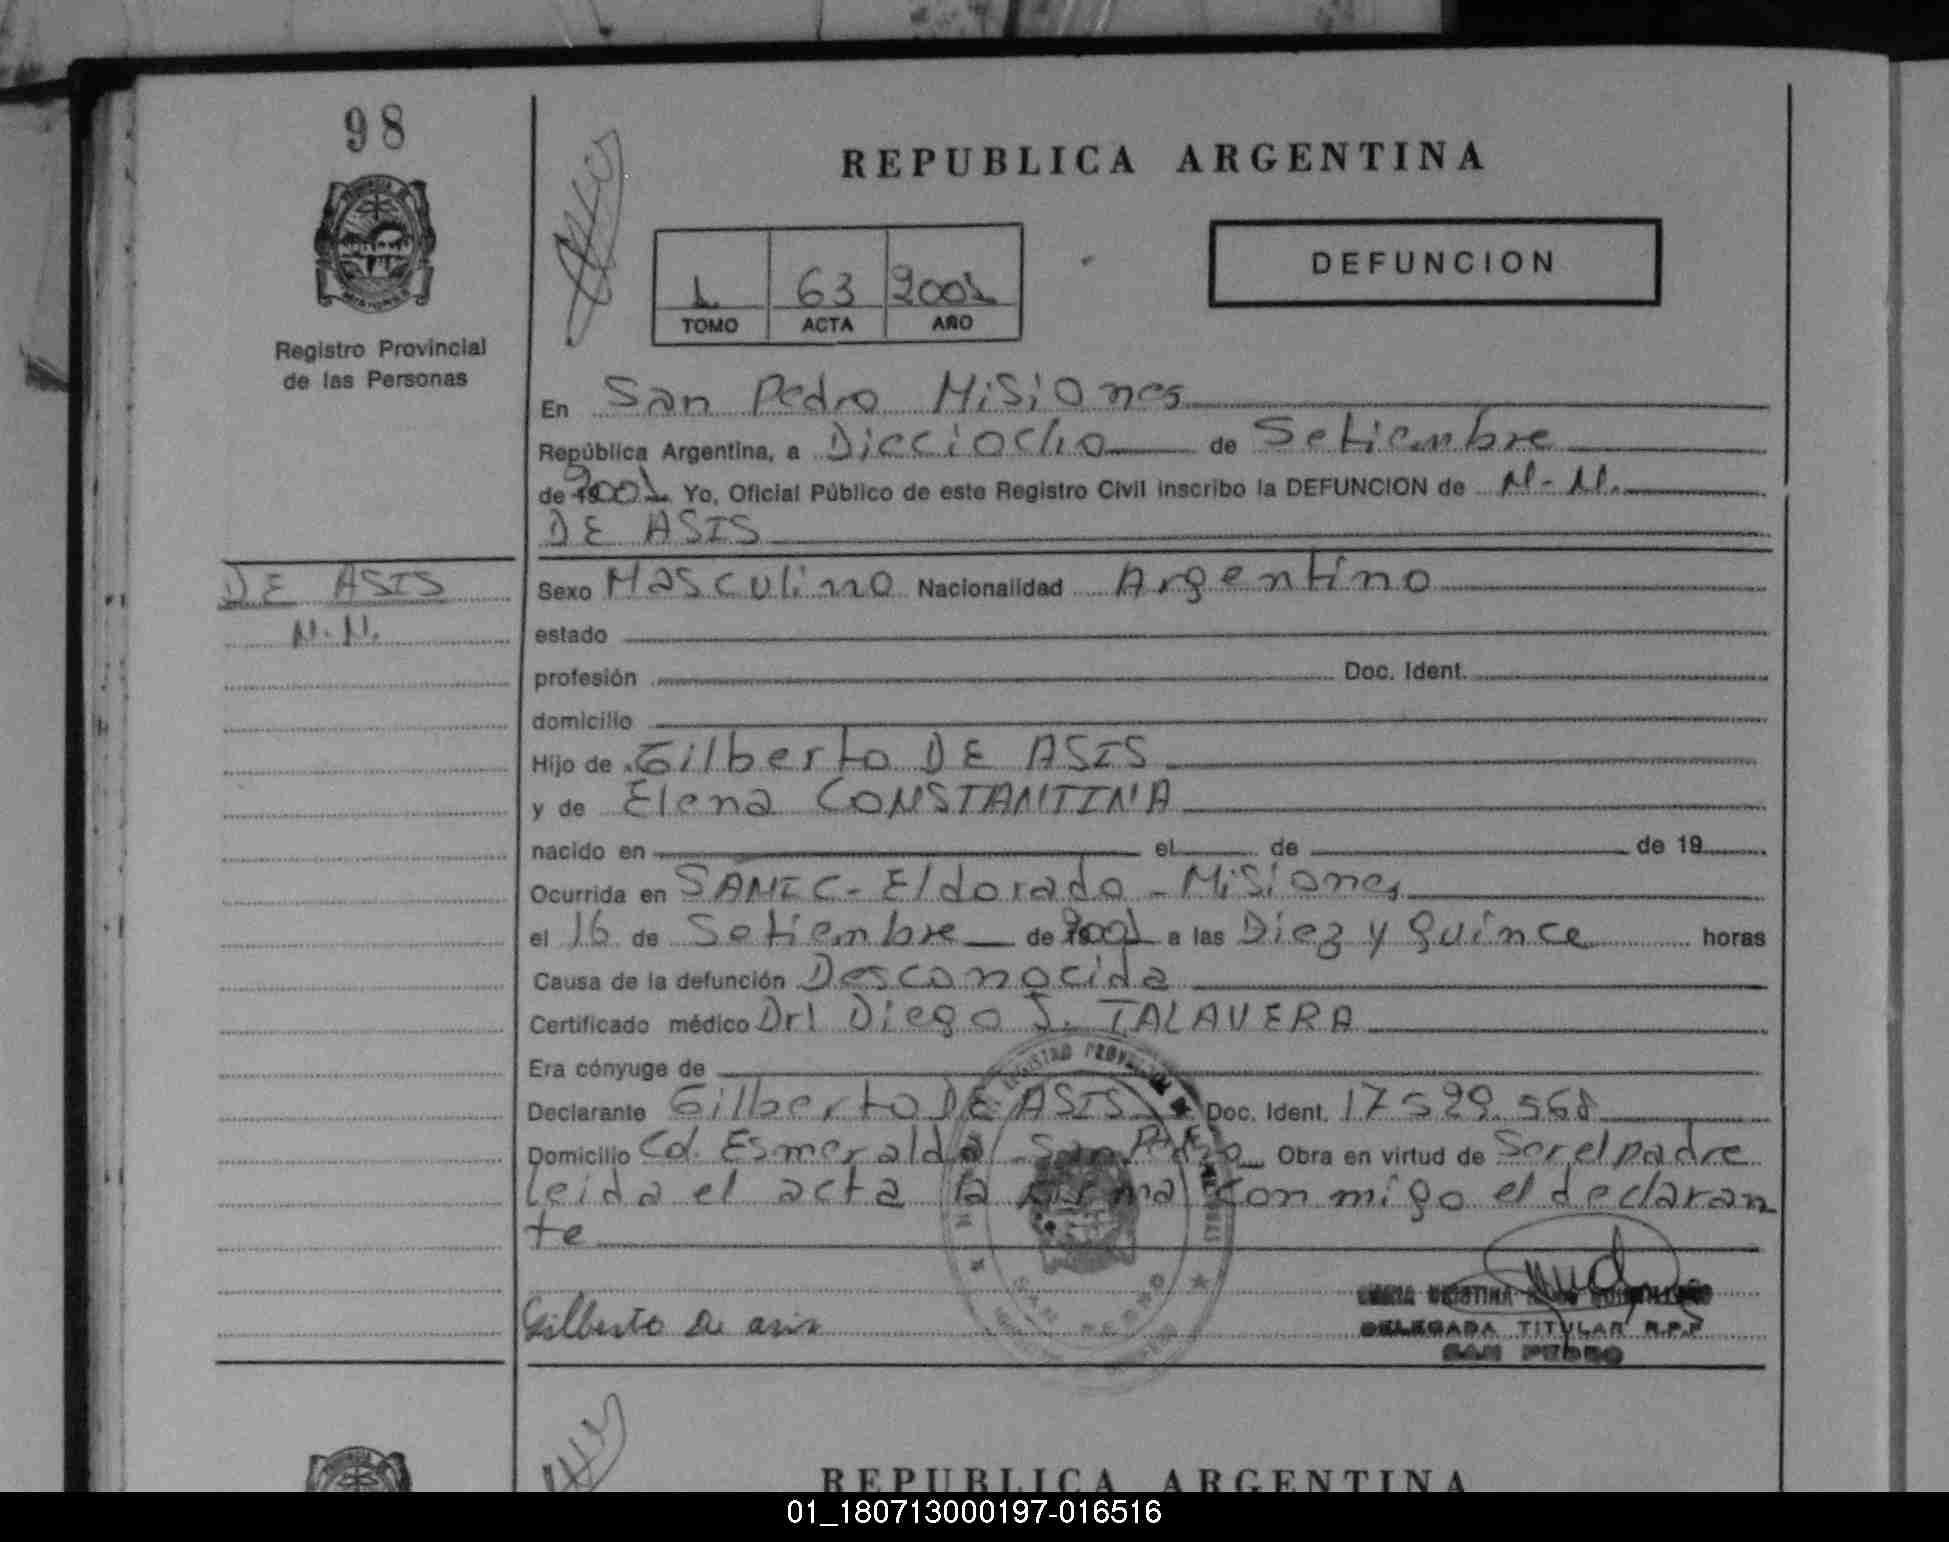 98
REPUBLICA ARGENTINA
1 63 2001
TOMO ACTA AÑO
DEFUNCION
Registro Provincial
de las Personas
En San Pedro Misiones
República Argentina, a Dieciocho de Setiembre
de 2001 Yo, Oficial Público de este Registro Civil inscribo la DEFUNCION de N-N.
DE ASIS
DE ASIS
N.N.
Sexo Masculino Nacionalidad Argentino
estado
profesión Doc. Ident.
domicilio
Hijo de Gilberto DE ASIS
y de Elena CONSTANTINA
nacido en el de de 19
Ocurrida en SAMIC - Eldorado - Misiones
el 16 de Setiembre de 2001 a las Diez y Quince horas
Causa de la defunción Desconocida
Certificado médico Dr! Diego J. TALAVERA
Era cónyuge de
Declarante Gilberto DE ASIS Doc. Ident. 17 529.568
Domicilio Cd. Esmeralda San Pedro Obra en virtud de Ser el padre
leida el acta la firma con migo el declaran
te
Gilberto De asis
DELEGADA TITULAR R.P.P
SAN PEDRO
REPUBLICA ARGENTINA
01_180713000197-016516